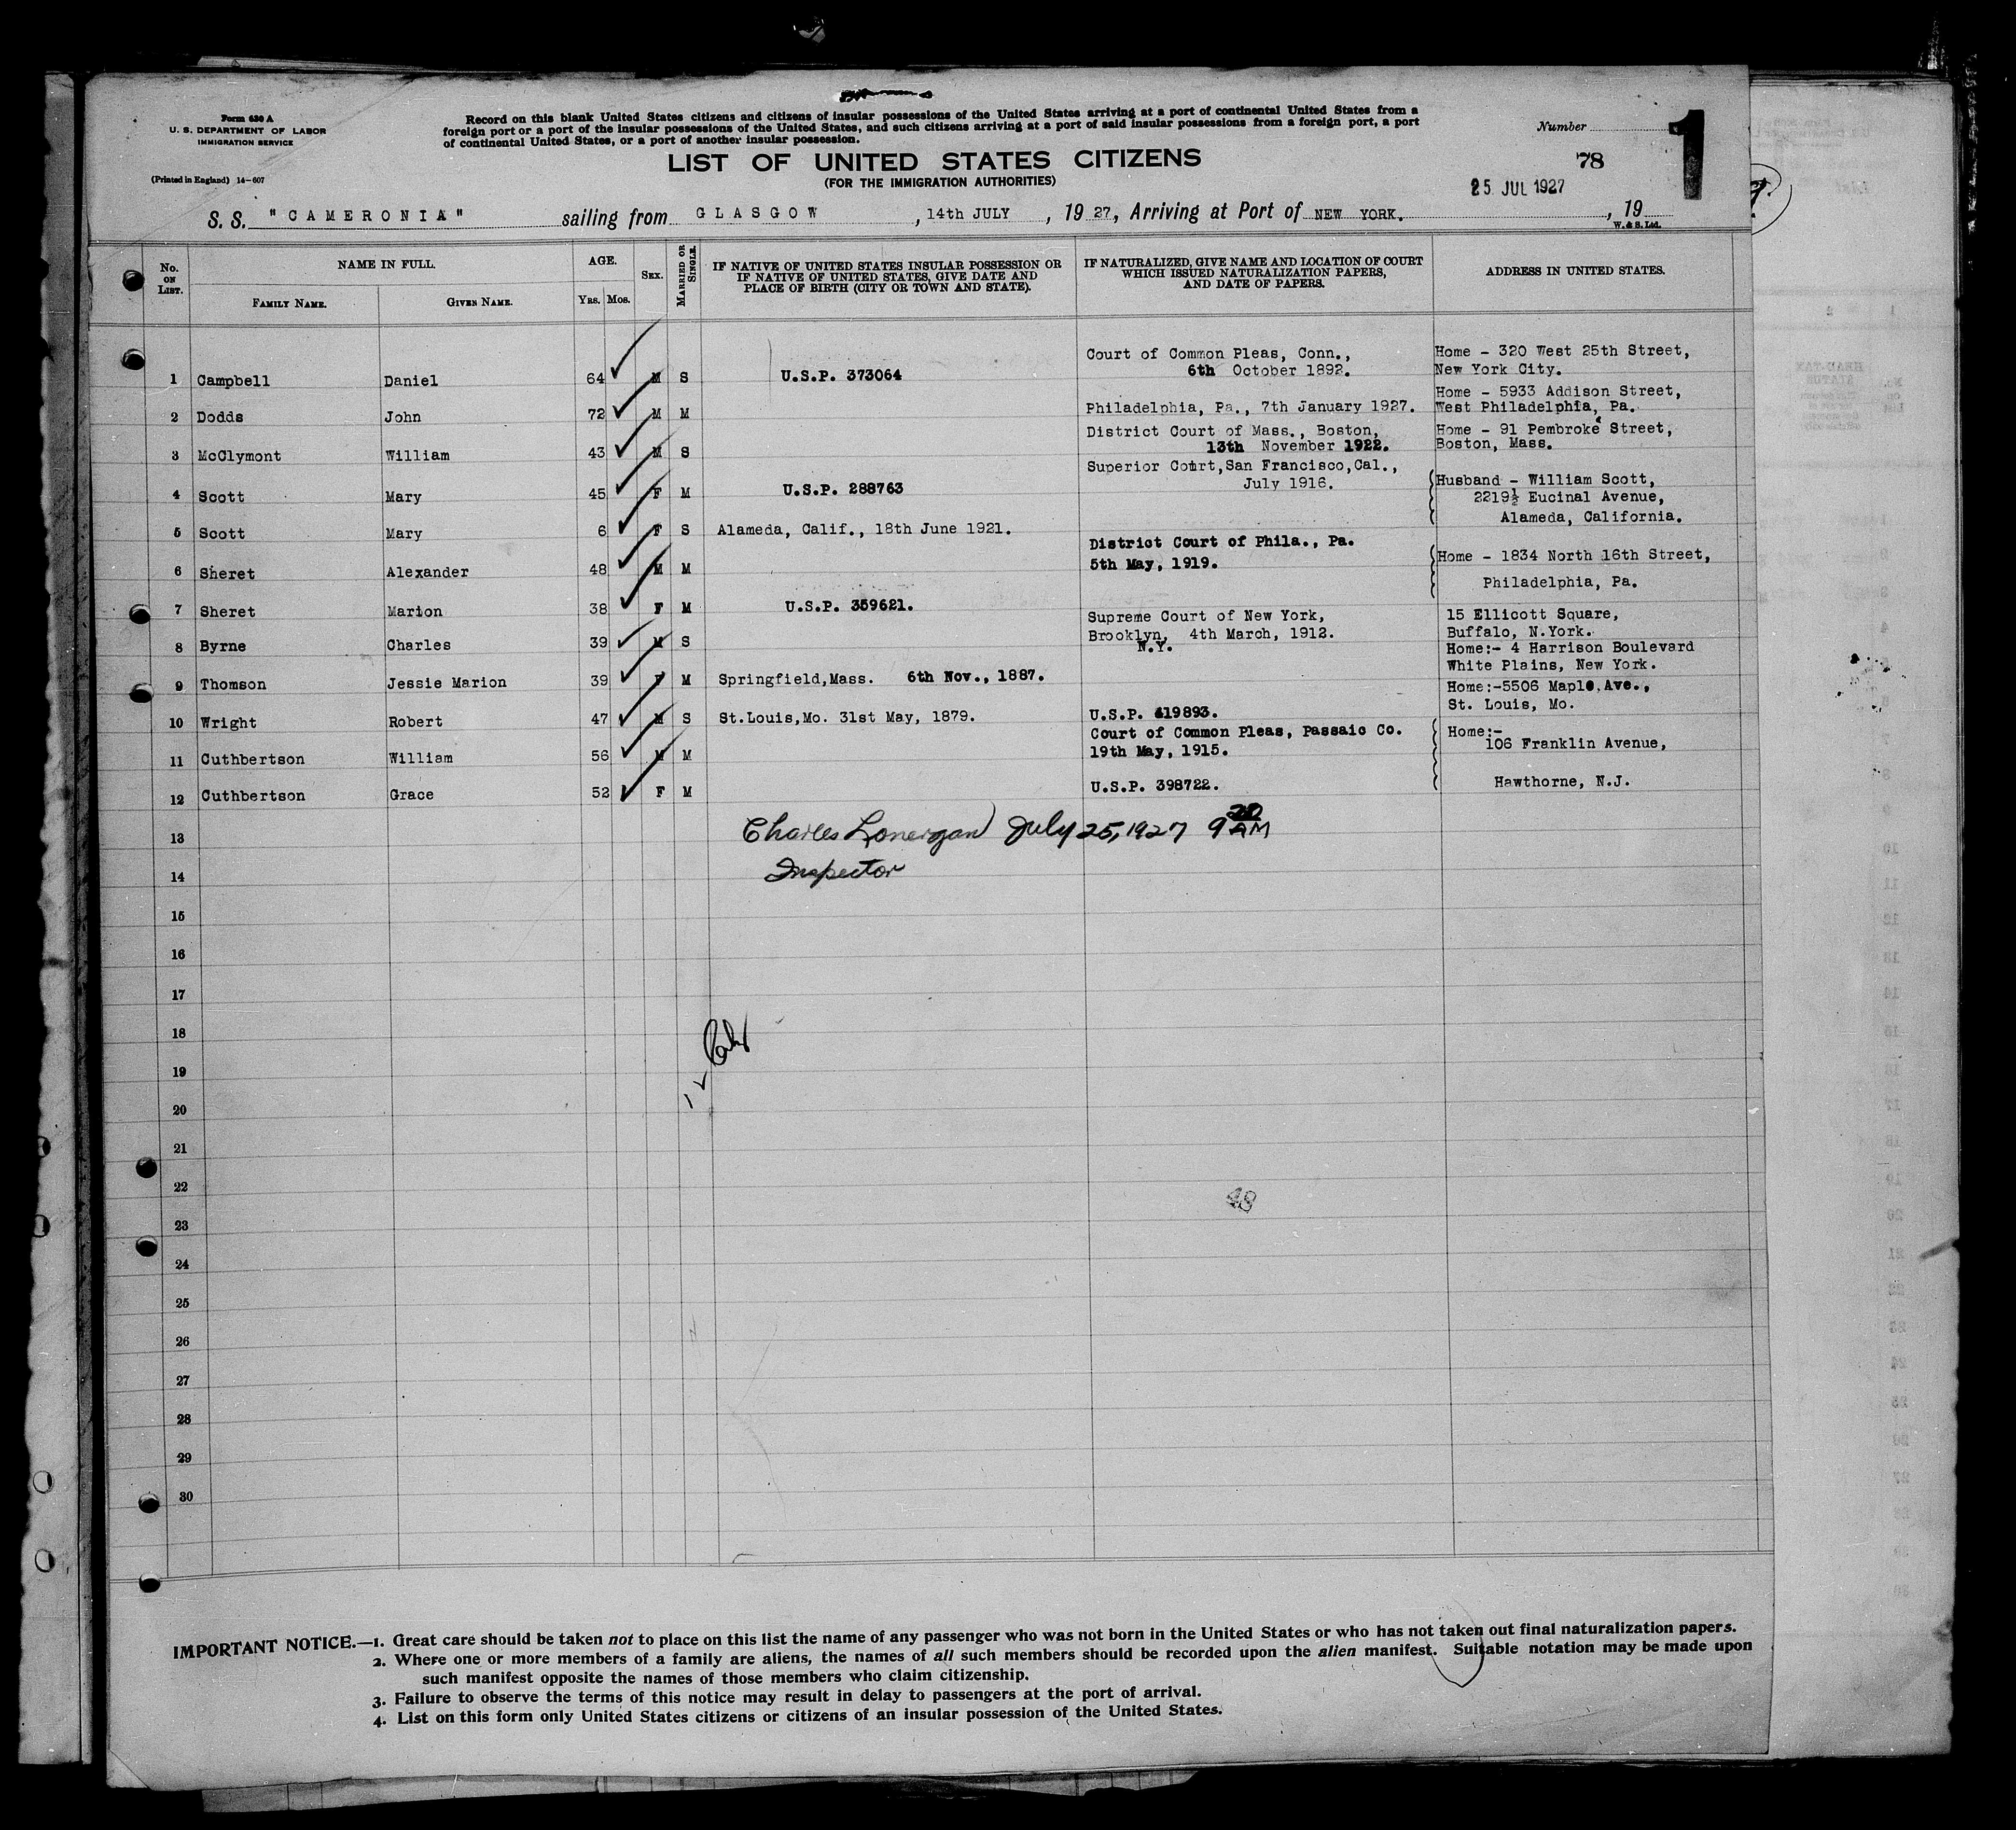 Form 630 A
U. S. DEPARTMENT OF LABOR
IMMIGRATION SERVICE
(Printed in England) 14-607
Record on this blank United States citizens and citizens of insular possessions of the United States arriving at a port of continental United States from a
foreign port or a port of the insular possessions of the United States, and such citizens arriving at a port of said insular possessions from a foreign port, a port
of continental United States, or a port of another insular possession.
LIST OF UNITED STATES CITIZENS
(FOR THE IMMIGRATION AUTHORITIES)
Number
1
78
25 JUL 1927
S. S. "CAMERONIA" sailing from GLASGOW, 14th JULY, 1927, Arriving at Port of NEW YORK., 19
W. & S. Ltd.
No. ON LIST. NAME IN FULL. AGE. SEX. MARRIED OR SINGLE. IF NATIVE OF UNITED STATES INSULAR POSSESSION OR IF NATIVE OF UNITED STATES, GIVE DATE AND PLACE OF BIRTH (CITY OR TOWN AND STATE). IF NATURALIZED, GIVE NAME AND LOCATION OF COURT WHICH ISSUED NATURALIZATION PAPERS, AND DATE OF PAPERS. ADDRESS IN UNITED STATES.
FAMILY NAME. GIVEN NAME. YRS. MOS.
Court of Common Pleas, Conn., Home - 320 West 25th Street,
1 Campbell Daniel 64 M S U.S.P. 373064 6th October 1892. New York City.
Home - 5933 Addison Street,
2 Dodds John 72 M M Philadelphia, Pa., 7th January 1927. West Philadelphia, Pa.
District Court of Mass., Boston, Home - 91 Pembroke Street,
3 McClymont William 43 M S 13th November 1922. Boston, Mass.
Superior Court, San Francisco, Cal.,
4 Scott Mary 45 F M U.S.P. 288763 July 1916. Husband - William Scott,
2219½ Eucinal Avenue,
Alameda, California.
5 Scott Mary 6 F S Alameda, Calif., 18th June 1921.
District Court of Phila., Pa.
6 Sheret Alexander 48 M M 5th May, 1919. Home - 1834 North 16th Street,
Philadelphia, Pa.
7 Sheret Marion 38 F M U.S.P. 359621.
Supreme Court of New York, 15 Ellicott Square,
8 Byrne Charles 39 M S Brooklyn, 4th March, 1912. Buffalo, N.York.
N.Y. Home:- 4 Harrison Boulevard
White Plains, New York.
9 Thomson Jessie Marion 39 F M Springfield, Mass. 6th Nov., 1887.
Home:-5506 Maple, Ave.,
St. Louis, Mo.
10 Wright Robert 47 M S St.Louis, Mo. 31st May, 1879. U.S.P. 419893.
Court of Common Pleas, Passaic Co. Home:-
11 Cuthbertson William 56 M M 19th May, 1915. 106 Franklin Avenue,
12 Cuthbertson Grace 52 F M U.S.P. 398722. Hawthorne, N.J.
13 Charles Lonergan July 25, 1927 9 20 AM
14 Inspector
15
16
17
18
19
20
21
22
48
23
24
25
26
27
28
29
30
IMPORTANT NOTICE.—1. Great care should be taken not to place on this list the name of any passenger who was not born in the United States or who has not taken out final naturalization papers.
2. Where one or more members of a family are aliens, the names of all such members should be recorded upon the alien manifest. Suitable notation may be made upon
such manifest opposite the names of those members who claim citizenship.
3. Failure to observe the terms of this notice may result in delay to passengers at the port of arrival.
4. List on this form only United States citizens or citizens of an insular possession of the United States.